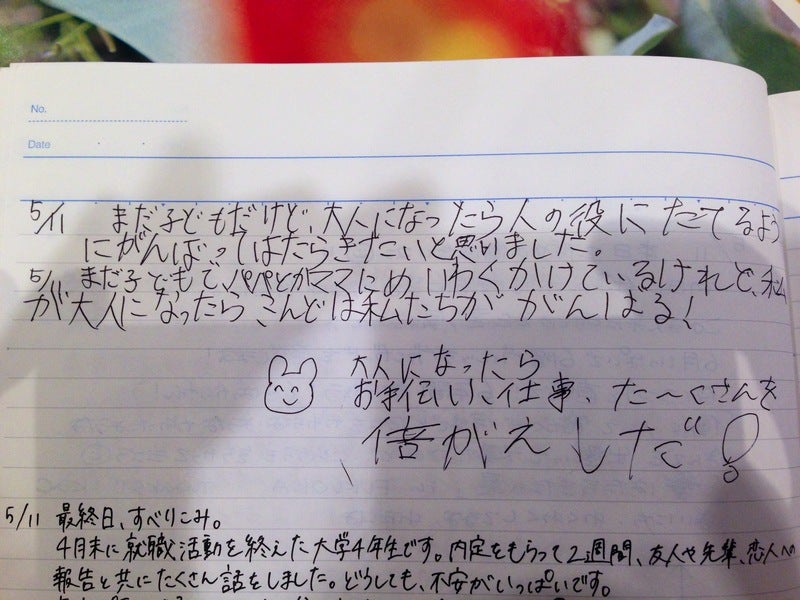 No.
Date
5/11 まだ子どもだけど、大人になったら人の役にたてるよう
にがんばってはたらきたいと思いました。
5/11 まだ子どもで、パパとかママにめいわくかけているけれど、私
が大人になったら、こんどは私たちががんばる!
大人になったら
お手伝い、仕事、た〜くさんを
倍がえしだ!
5/11 最終日、すべりこみ。
4月末に就職活動を終えた大学4年生です。内定をもらって2週間、友人や先輩、恋人への
報告と共にたくさん話をしました。どうしても、不安がいっぱいです。